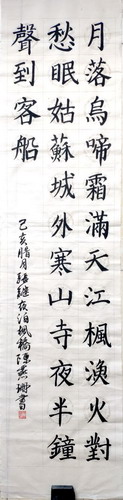 月落烏啼霜滿天江楓漁火對
愁眠姑蘇城外寒山寺夜半鐘
聲到客船
己亥臘月張繼夜泊楓橋陳素珊書